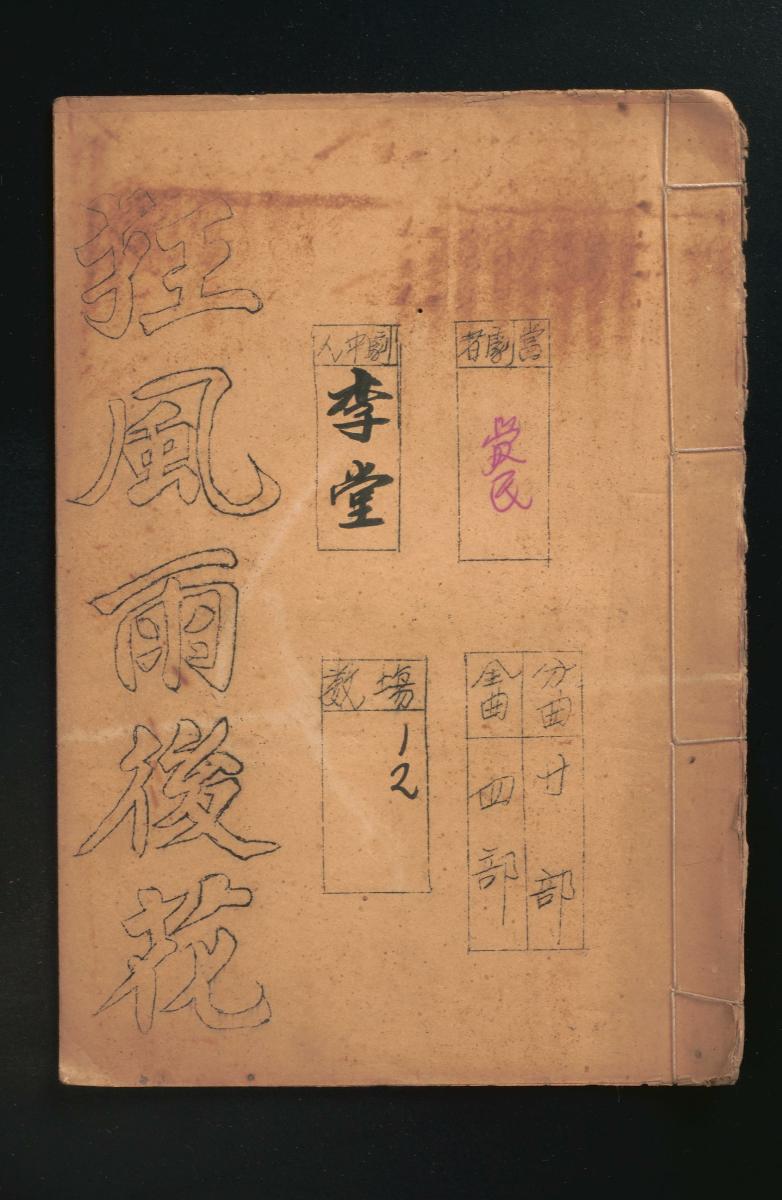 當劇者
劇中人
李堂
分曲廿部
全曲四部
塲数
12
狂風雨後花